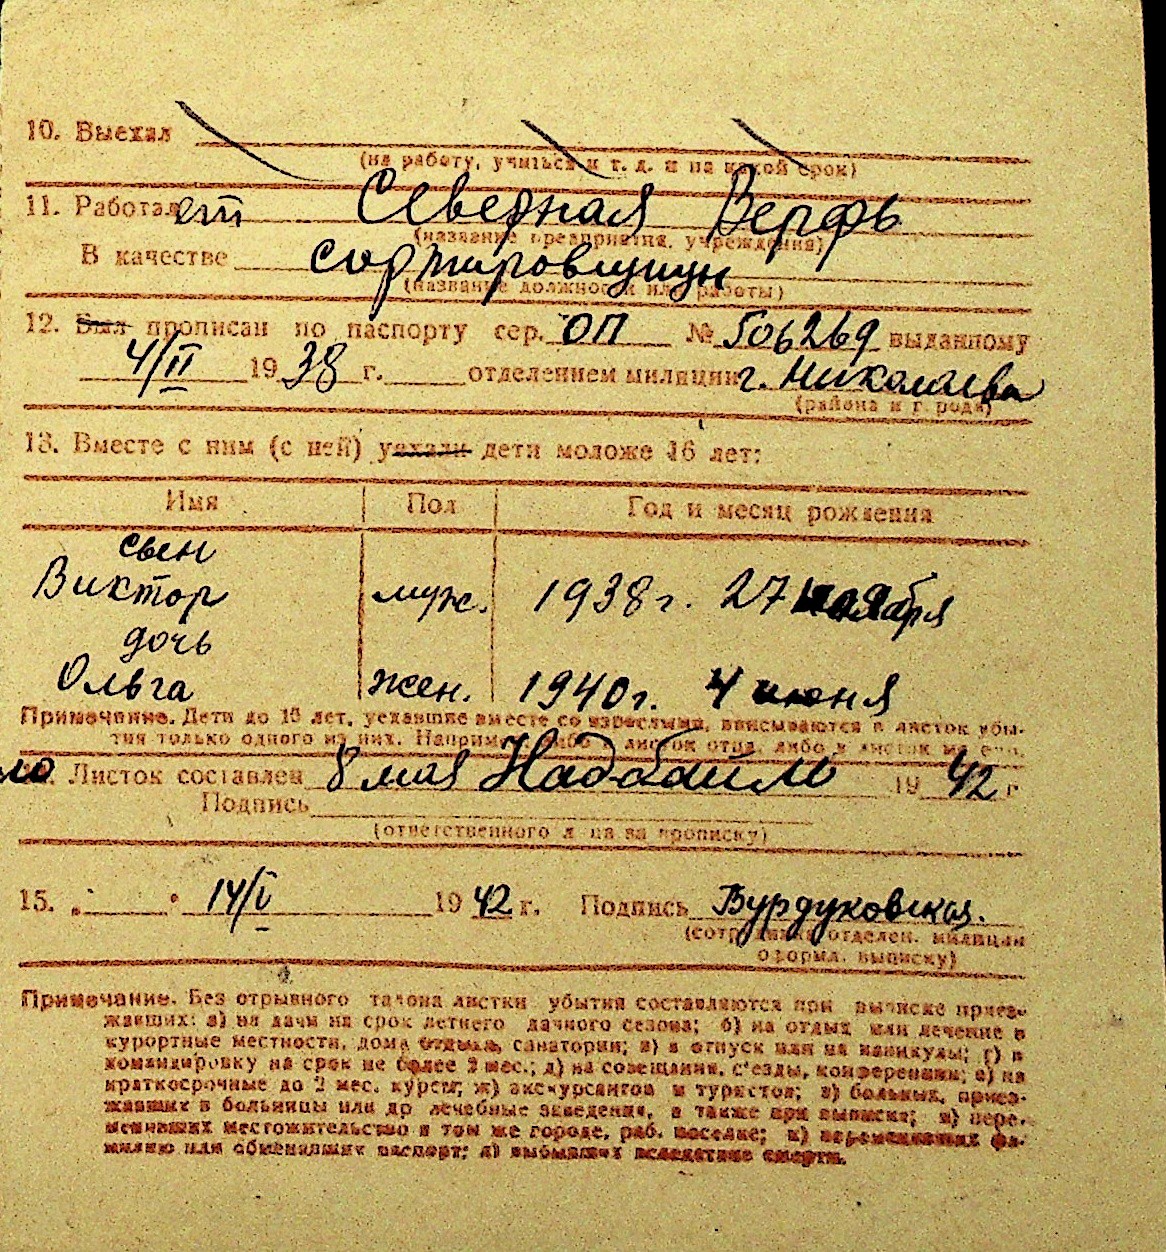 10. Выехал
(на работу, учиться и т. д. и на какой срок)
11. Работает Северная Верфь
(название предприятия, учреждения)
В качестве сортировщицы
(название должности или работы)
12. Был прописан по паспорту сер. ОП № 506269 выданному
4/II 1938 г. отделением милиции г. Николаева
(района и города)
13. Вместе с ним (с ней) уехали дети моложе 16 лет:
Имя Пол Год и месяц рождения
сын
Виктор муж. 1938 г. 27 ноября
дочь
Ольга жен. 1940 г. 4 июня
Примечание. Дети до 16 лет, уехавшие вместе со взрослыми, вписываются в листок убы-
тия только одного из них. Например, либо в листок отца, либо в листок матери.
Листок составлен 8 мая 1942 г
Подпись
(ответственного лица за прописку)
15. " " 14/V 1942 г. Подпись Бурдуковская.
(сотрудника отделен. милиции
оформл. выписку)
Примечание. Без отрывного талона листки убытия составляются при выписке приез-
жавших: а) на дачи на срок летнего дачного сезона; б) на отдых или лечение в
курортные местности, дома отдыха, санатории; в) в отпуск или на каникулы; г) в
командировку на срок не более 2 мес.; д) на совещания, с'езды, конференции; е) на
краткосрочные до 2 мес. курсы; ж) экскурсантов и туристов; з) больных, приез-
жавших в больницы или др лечебные заведения, а также при выписке; и) пере-
менивших местожительство в том же городе, раб. поселке; к) переменивших фа-
милию или обменявших паспорт; л) выбывших вследствие смерти.